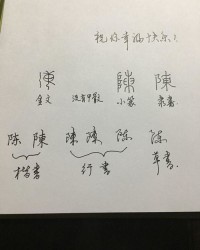 祝你幸福快乐！
陳 陳 陳
金文 没有甲骨 小篆 隶书
陈 陳 陳 陳 陈 陈
楷书 行书 草书